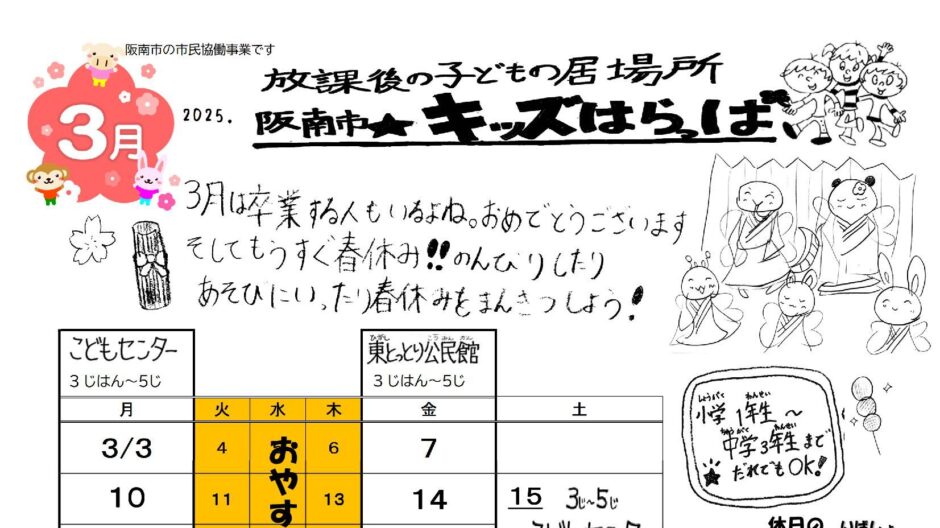 阪南市の市民協働事業です
3月
2025.
放課後の子どもの居場所
阪南市★キッズはらっぱ
3月は卒業する人もいるよね。おめでとうございます
そしてもうすぐ春休み!!のんびりしたり
あそびにいったり春休みをまんきつしよう!
こどもセンター
3じはん～5じ
ひがし こうみんかん
東とっとり公民館
3じはん～5じ
月 火 水 木 金 土
3/3 4 6 7
おやす
10 11 13 14 15 3じ～5じ
しょうがく ねんせい
小学1年生～
ちゅうがく ねんせい
中学3年生まで
★だれでもOK!